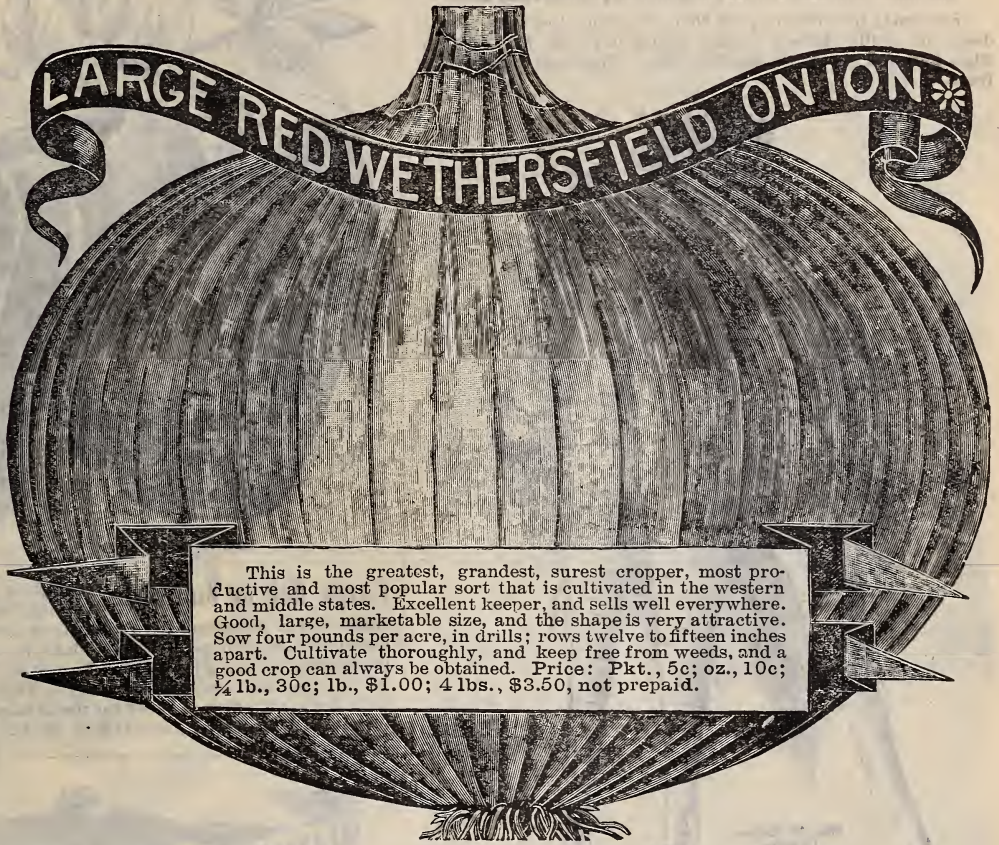 LARGE RED WETHERSFIELD ONION
This is the greatest, grandest, surest cropper, most pro-
ductive and most popular sort that is cultivated in the western
and middle states. Excellent keeper, and sells well everywhere.
Good, large, marketable size, and the shape is very attractive.
Sow four pounds per acre, in drills; rows twelve to fifteen inches
apart. Cultivate thoroughly, and keep free from weeds, and a
good crop can always be obtained. Price: Pkt., 5c; oz., 10c;
¼ lb., 30c; lb., $1.00; 4 lbs., $3.50, not prepaid.